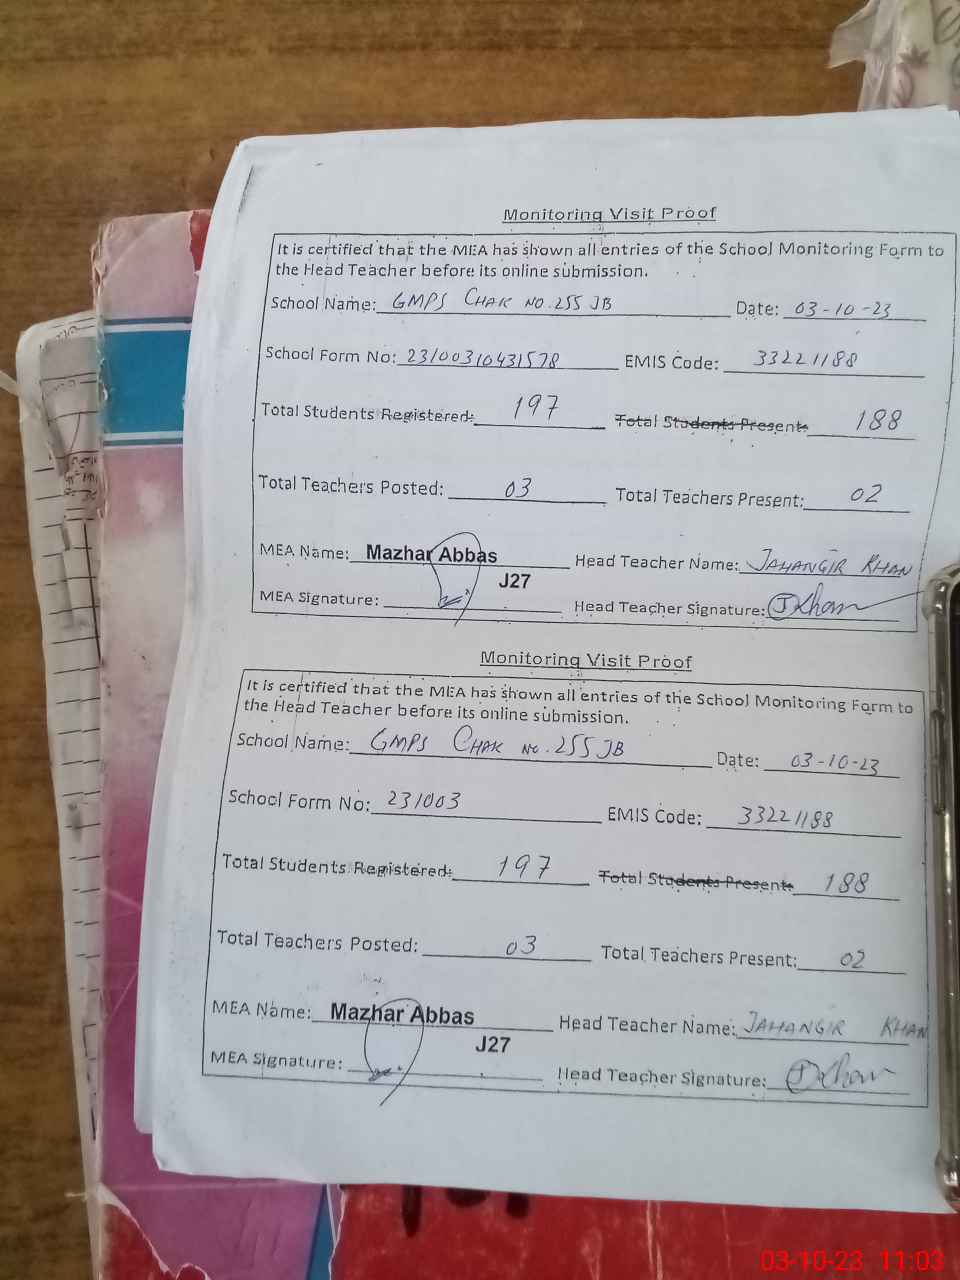 Monitoring Visit Proof
It is certified that the MEA has shown all entries of the School Monitoring Form to
the Head Teacher before its online submission.
School Name: GMPS CHAK NO. 255 JB Date: 03-10-23
School Form No: 23100310431578 EMIS Code: 33221188
Total Students Registered: 197 Total Students Present: 188
Total Teachers Posted: 03 Total Teachers Present: 02
MEA Name: Mazhar Abbas Head Teacher Name: JAHANGIR KHAN
J27
MEA Signature: Head Teacher Signature: JKhan
Monitoring Visit Proof
It is certified that the MEA has shown all entries of the School Monitoring Form to
the Head Teacher before its online submission.
School Name: GMPS CHAK NO. 255 JB Date: 03-10-23
School Form No: 231003 EMIS Code: 33221188
Total Students Registered: 197 Total Students Present: 188
Total Teachers Posted: 03 Total Teachers Present: 02
MEA Name: Mazhar Abbas Head Teacher Name: JAHANGIR KHAN
J27
MEA Signature: Head Teacher Signature: JKhan
03-10-23 11:03